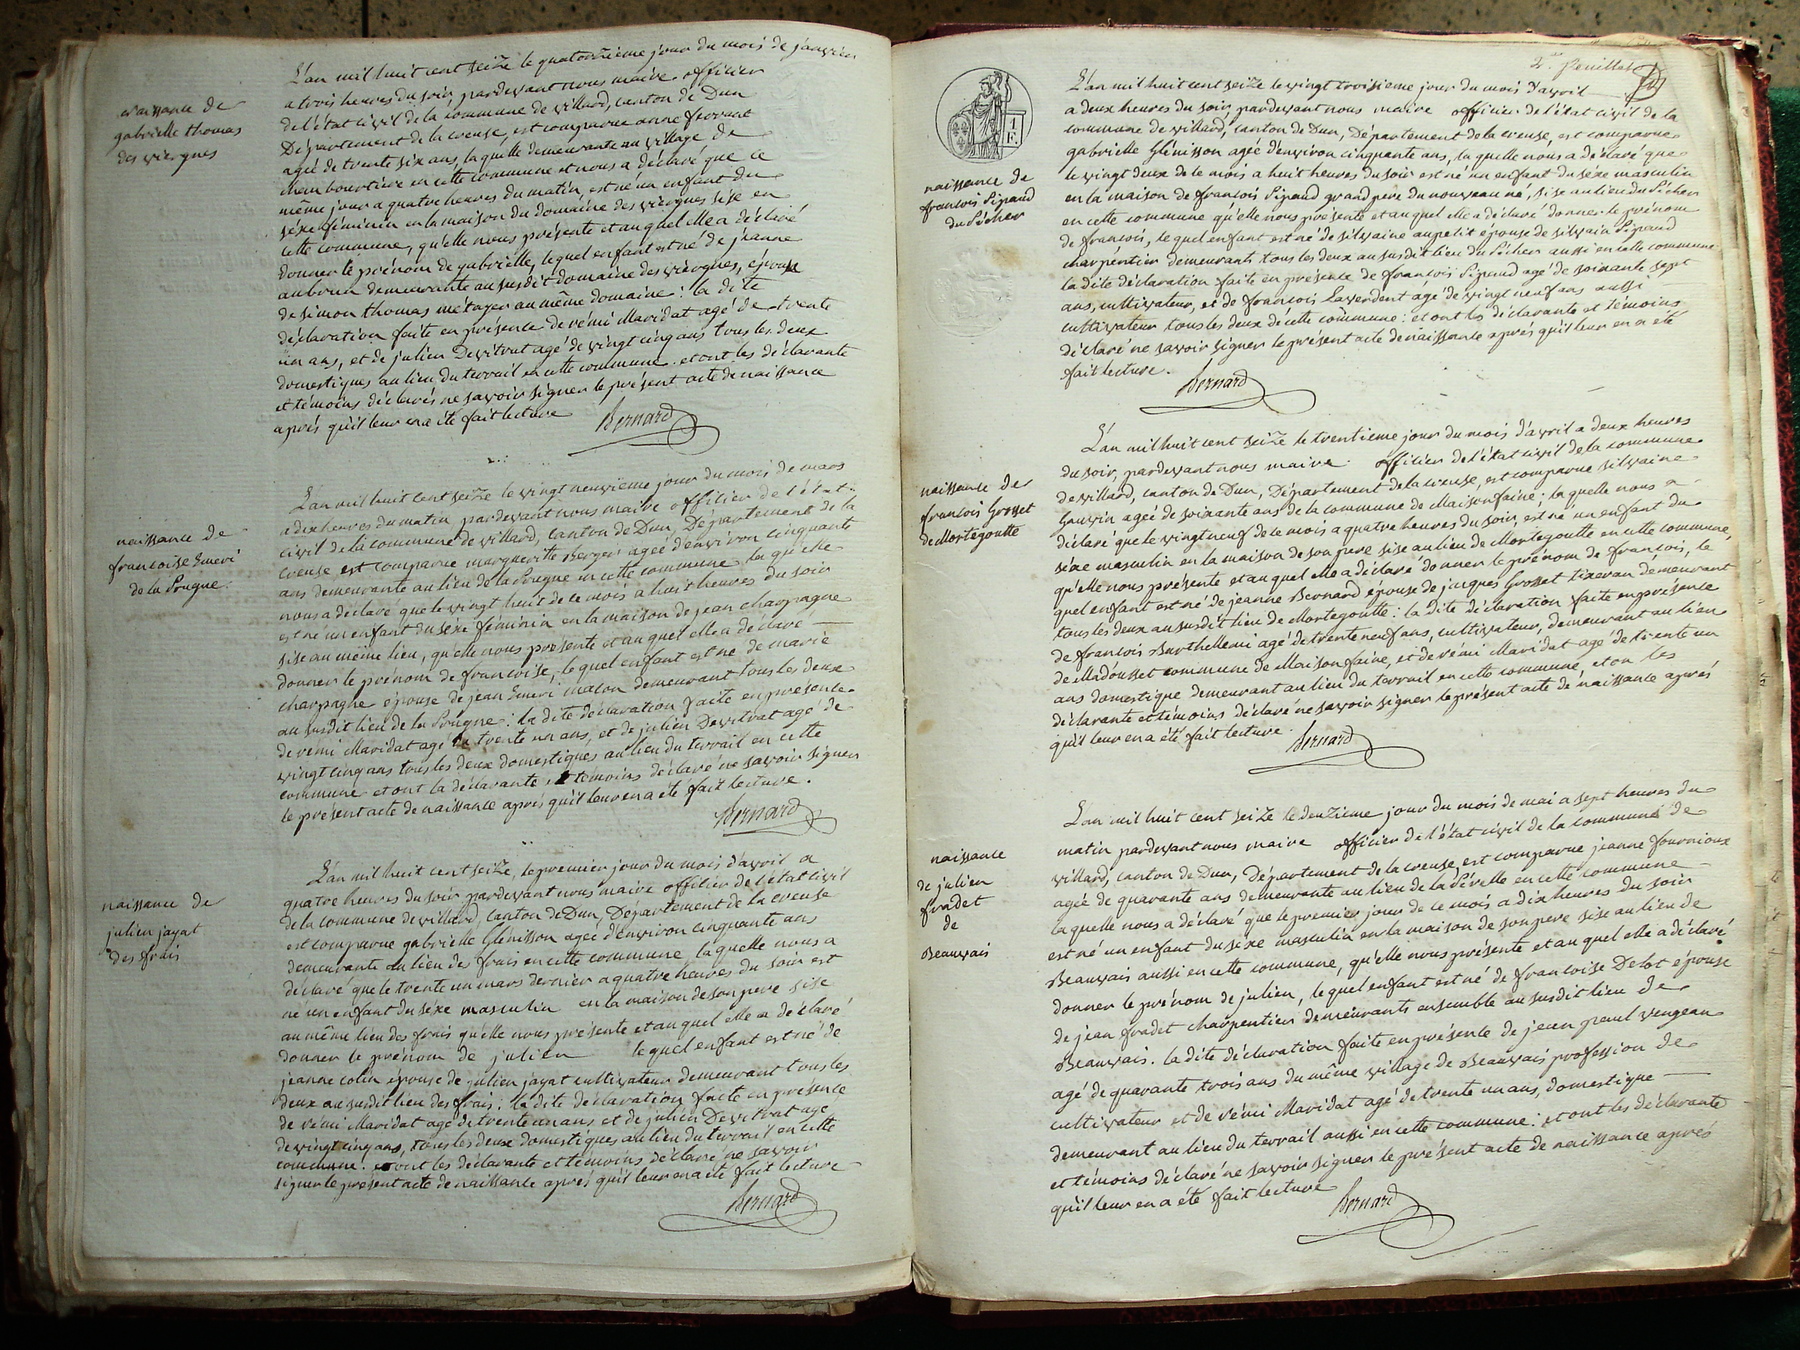 naissance de
gabrielle thomas
des viergnes
L'an mil huit cent seize le quatorzième jour du mois de janvier
a trois heures du soir, pardevant nous maire officier
de l'état civil de la commune de villard, canton de Dun
Département de la creuse, est comparue anne ferrant
agée de trente six ans, la quelle demeurante au village de
chambourtière en cette commune et nous a déclaré que ce
même jour a quatre heures du matin, est né un enfant du
sexe féminin en la maison du domaine des viergnes sise en
cette commune, qu'elle nous présente et au quel elle a déclaré
donner le prénom de gabrielle, le quel enfant est né de jeanne
aubrun demeurante au susdit domaine des viergnes, épouse
de simon thomas métayer au même domaine : la dite
déclaration faite en présence de rémi Maridat agé de trente
un ans, et de julien Devitrat agé de vingt cinq ans tous les deux
domestiques au lieu du terrail en cette commune. et ont les déclarante
et témoins déclarés ne savoir signer le présent acte de naissance
après qu'il leur en a été fait lecture
Bernard
naissance de
francoise Emeri
de la Pougne.
L'an mil huit cent seize le vingt neuvieme jour du mois de mars
a dix heures du matin pardevant nous maire officier de l'état
civil de la commune de villard, canton de Dun, Département de la
creuse est comparue margueritte Berger agée d'environ cinquante
ans demeurante au lieu de la Pougne en cette commune la quelle
nous a déclaré que le vingt huit de ce mois à huit heures du soir
est né un enfant du sexe féminin en la maison de jean charpagne
sise au même lieu, qu'elle nous présente et au quel elle a déclaré
donner le prénom de francoise, le quel enfant est né de marie
charpagne épouse de jean Emeri macon demeurant tous les deux
au susdit lieu de la Pougne : la dite déclaration faite en présence
de rémi Maridat agé de trente un ans, et de julien Devitrat agé de
vingt cinq ans tous les deux domestiques au lieu du terrail en cette
commune et ont la déclarante et témoins déclaré ne savoir signer
le présent acte de naissance après qu'il leur en a été fait lecture.
Bernard
naissance de
julien jayat
des frais
L'an mil huit cent seize, le premier jour du mois d'avril a
quatre heures du soir pardevant nous maire officier de l'état civil
de la commune de villard, canton de Dun, Département de la creuse
est comparue gabrielle Glénisson agée d'environ cinquante ans
demeurante au lieu des frais en cette commune, la quelle nous a
déclaré que le trente un mars dernier a quatre heures du soir est
né un enfant du sexe masculin en la maison de son pere sise
au même lieu des frais qu'elle nous présente et au quel elle a déclaré
donner le prénom de julien le quel enfant est né de
jeanne colin épouse de julien jayat cultivateur demeurant tous les
deux au susdit lieu des frais : la dite déclaration faite en présence
de rémi Maridat agé de trente un ans et de julien Devitrat agé
de vingt cinq ans, tous les deux domestiques au lieu du terrail en cette
commune. et ont les déclarante et témoins déclaré ne savoir
signer le présent acte de naissance après qu'il leur en a été fait lecture
Bernard
2e. feuillet
1 F.
naissance de
françois Pipaud
du Pêcher
L'an mil huit cent seize le vingt troisieme jour du mois d'avril
a deux heures du soir, pardevant nous maire officier de l'état civil de la
commune de villard, canton de Dun, Département de la creuse, est comparue
gabrielle Glénisson agée d'environ cinquante ans, la quelle nous a déclaré que
le vingt deux de ce mois a huit heures du soir est né un enfant du sexe masculin
en la maison de françois Pipaud grand pere du nouveau né, sise au lieu du Pêcher
en cette commune qu'elle nous présente et au quel elle a déclaré donner le prénom
de francois, le quel enfant est né de silvaine aupetit épouse de silvain Pipaud
charpentier demeurants tous les deux au susdit lieu du Pêcher aussi en cette commune
la dite déclaration faite en présence de françois Pipaud agé de soixante sept
ans, cultivateur, et de françois Laverdent agé de vingt neuf ans aussi
cultivateur tous les deux de cette commune : et ont les déclarante et témoins
déclaré ne savoir signer le présent acte de naissance après qu'il leur en a été
fait lecture.
Bernard
naissance de
francois Grosset
de Mortegoutte
L'an mil huit cent seize le trentieme jour du mois d'avril a deux heures
du soir, pardevant nous maire officier de l'état civil de la commune
de villard, canton de Dun, Département de la creuse, est comparue silvaine
Gouvin agée de soixante ans de la commune de Maisonfaine : la quelle nous a
déclaré que le vingt neuf de ce mois a quatre heures du soir, est né un enfant du
sexe masculin en la maison de son pere sise au lieu de Mortegoutte en cette commune,
qu'elle nous présente et au quel elle a déclaré donner le prénom de francois, le
quel enfant est né de jeanne Bernard épouse de jacques Grosset tixeran demeurant
tous les deux au susdit lieu de Mortegoutte : la dite déclaration faite en présence
de françois Barthellemi agé de trente neuf ans, cultivateur, demeurant au lieu
de Madousset commune de Maisonfaine, et de rémi Maridat agé de trente un
ans domestique demeurant au lieu du terrail en cette commune, et on les
déclarante et témoins déclaré ne savoir signer le présent acte de naissance après
qu'il leur en a été fait lecture.
Bernard
naissance
de julien
fradet
de
Beauvais
L'an mil huit cent seize le deuzieme jour du mois de mai a sept heures du
matin pardevant nous maire officier de l'état civil de la commune de
villard, canton de Dun, Département de la creuse, est comparue jeanne fournioux
agée de quarante ans demeurante au lieu de la Pérelle en cette commune
la quelle nous a déclaré que le premier jour de ce mois a dix heures du soir
est né un enfant du sexe masculin en la maison de son pere sise au lieu de
Beauvais aussi en cette commune, qu'elle nous présente et au quel elle a déclaré
donner le prénom de julien, le quel enfant est né de francoise Delot épouse
de jean fradet charpentier demeurants ensemble au susdit lieu de
Beauvais. la dite déclaration faite en présence de jean paul vengeau
agé de quarante trois ans du même village de Beauvais profession de
cultivateur et de rémi Maridat agé de trente un ans, domestique
demeurant au lieu du terrail aussi en cette commune : et ont les déclarante
et témoins déclaré ne savoir signer le présent acte de naissance après
qu'il leur en a été fait lecture
Bernard